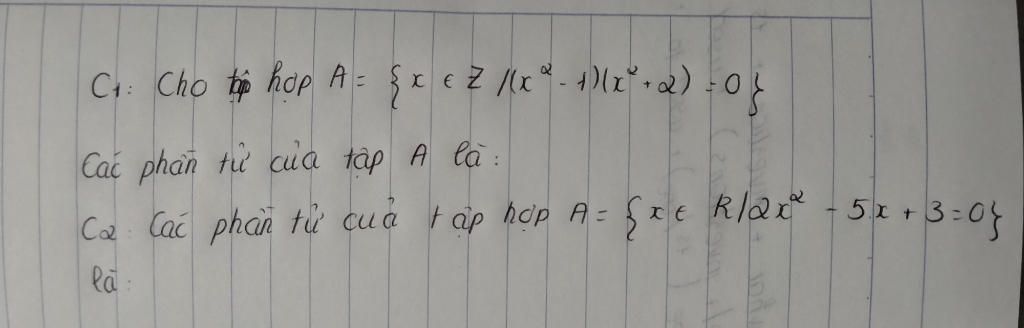 C1: Cho tập hợp A = { x ∈ Z /(x² - 1)(x² + 2) = 0}
Các phần tử của tập A là:
C2: Các phần tử của tập hợp A = {x ∈ R/2x² - 5x + 3 = 0}
là: